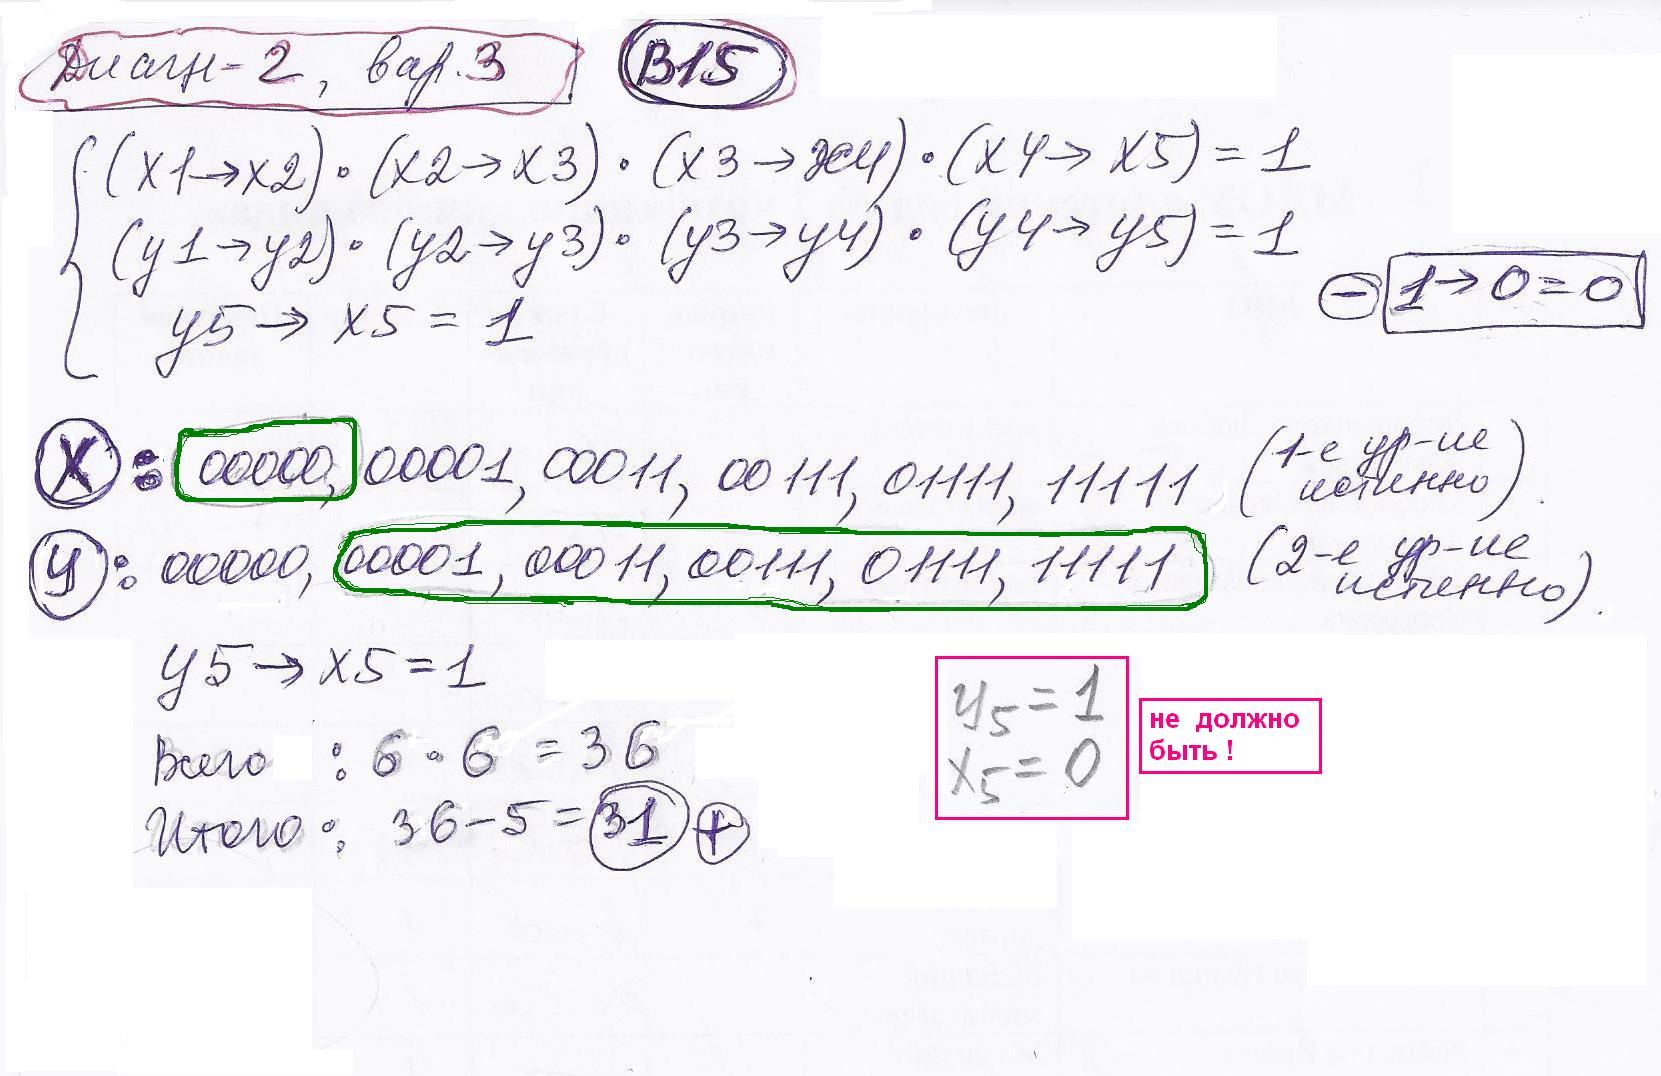 Диагн-2, вар.3 B15
(x1→x2)·(x2→x3)·(x3→x4)·(x4→x5)=1
(y1→y2)·(y2→y3)·(y3→y4)·(y4→y5)=1
y5→x5=1
− 1→0=0
X: 00000, 00001, 00011, 00111, 01111, 11111 (1-е ур-ие истинно).
У: 00000, 00001, 00011, 00111, 01111, 11111 (2-е ур-ие истинно).
y5→x5=1
Всего : 6·6 = 36
Итого : 36-5=31 +
y5=1
x5=0
не должно
быть !